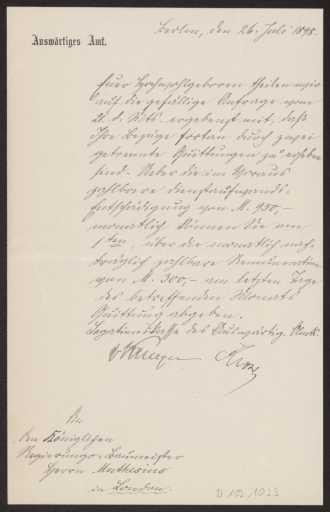 Auswärtiges Amt.
Berlin, den 26. Juli 1898.
Euer Hochwohlgeboren theilen wir
auf die gefällige Anfrage vom
21. d. Mts. ergebenst mit, daß
Ihre Bezüge fortan durch zwei
getrennte Quittungen zu erheben
sind. Ueber die im Voraus
zahlbare Dienstaufwands-
Entschädigung von M. 950,-
monatlich können Sie am
1ten, über die monatlich nach-
träglich zahlbare Remuneration
von M. 300,- am letzten Tage
des betreffenden Monats
Quittung abgeben.
Legationskasse des Auswärtig. Amts.
An
den Königlichen
Regierungs-Baumeister
Herrn Muthesius
in London.
D 102-1023